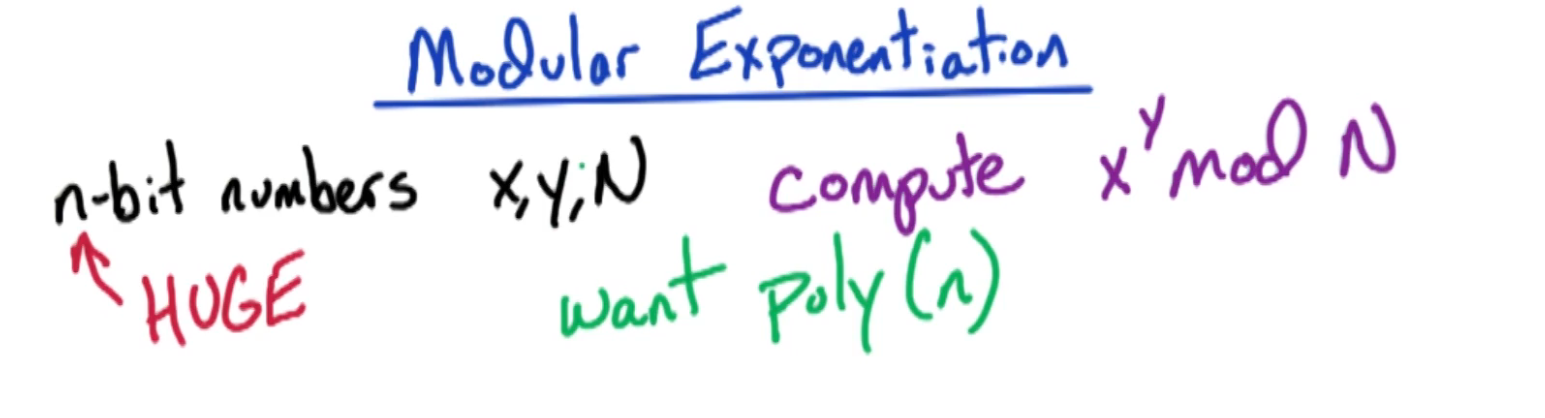 Modular Exponentiation
n-bit numbers x,y,N compute x^y mod N
HUGE want poly(n)